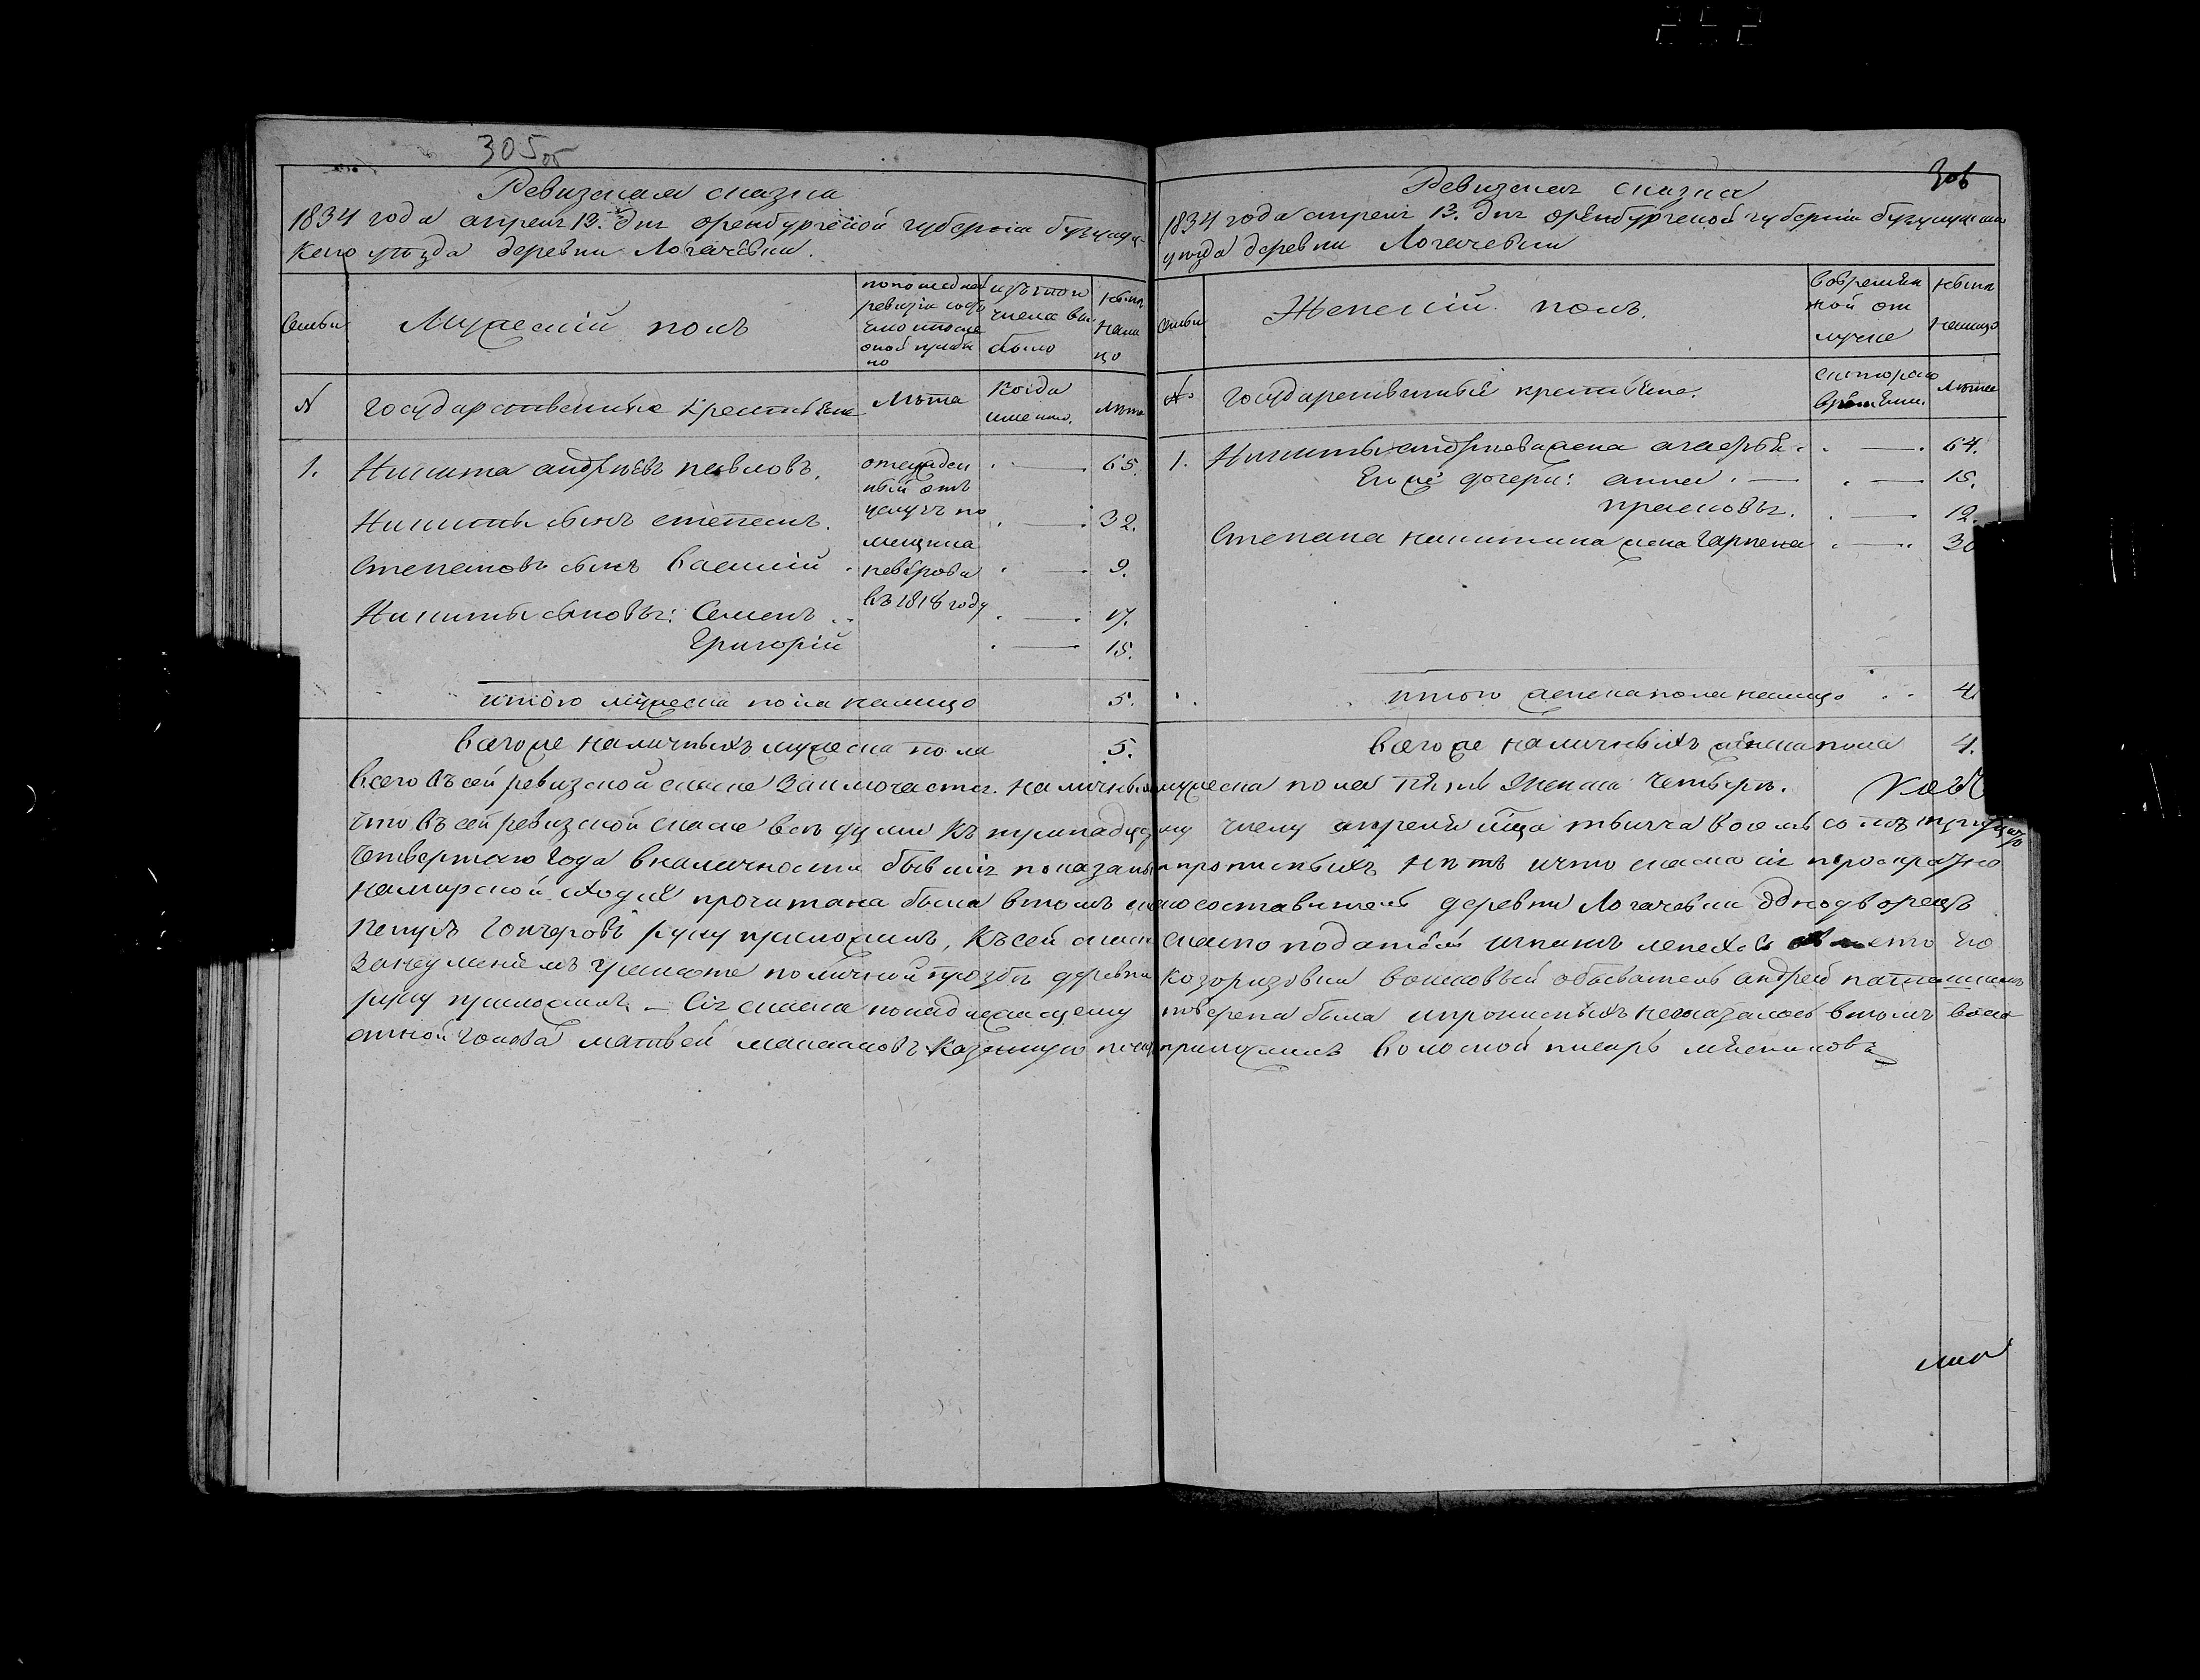 305об
Ревизская сказка
1834 года апреля 13. дня оренбургской губернии бугуруслан-
скаго уезда деревни Логачевки.
Семьи
Мужеский полъ
по последней
ревизіи состо
яло и после
оной прибы
ло
изъ того
числа вы
было
ныне
нали
цо
№
Государственные крестьяне
Лѣта
Когда
именно.
лѣта
1.
Никита андрѣевъ павловъ.
65.
отсужден
ный отъ
услугъ по
мещика
неверова
въ 1818 году
Никиты сынъ степанъ.
32.
Степановъ сынъ Василій
9.
Никиты сыновья: Семенъ
17.
Григорій
15.
итого мужеска пола налицо
5.
всего же наличныхъ мужеска пола
5.
306
Ревизская сказка
1834 года апреля 13. дня оренбургской губерніи бугурусланска
уезда деревни Логачевки
семьи
Женскій полъ.
Во времен
ной от
лучке
ныне
налицо
№
Государственные крестьяне.
Скотораго
времени.
Лѣта
1.
Никиты андрѣева жена
64.
Его же дочери: анна
15.
прасковья.
12.
Степана никитина жена Гарпена
30
итого женска пола налицо
4
всего же наличныхъ женска пола
4.
всего въ сей ревизской сказке заключается. наличных мужеска пола пять женска четыре.
что въ сей ревизской сказке все души къ тринадцатому числу апреля мца тысяча восемь сотъ тридцать
четвертаго года в наличности бывшія показаны и прописныхъ нетъ и что сказка сія
на мирской сходке прочитана была в томъ составитель деревни Логачевки однодворецъ
гончеровъ руку приложилъ, къ сей сказке податель его
за неумениемъ грамоте по личной прозбе деревни обыватель андрей
руку приложилъ. — Сія сказка по надлежащему поверена была и прописныхъ не оказалось в томъ воло
стной голова матвей казенную печать приложилъ Волостной писарь